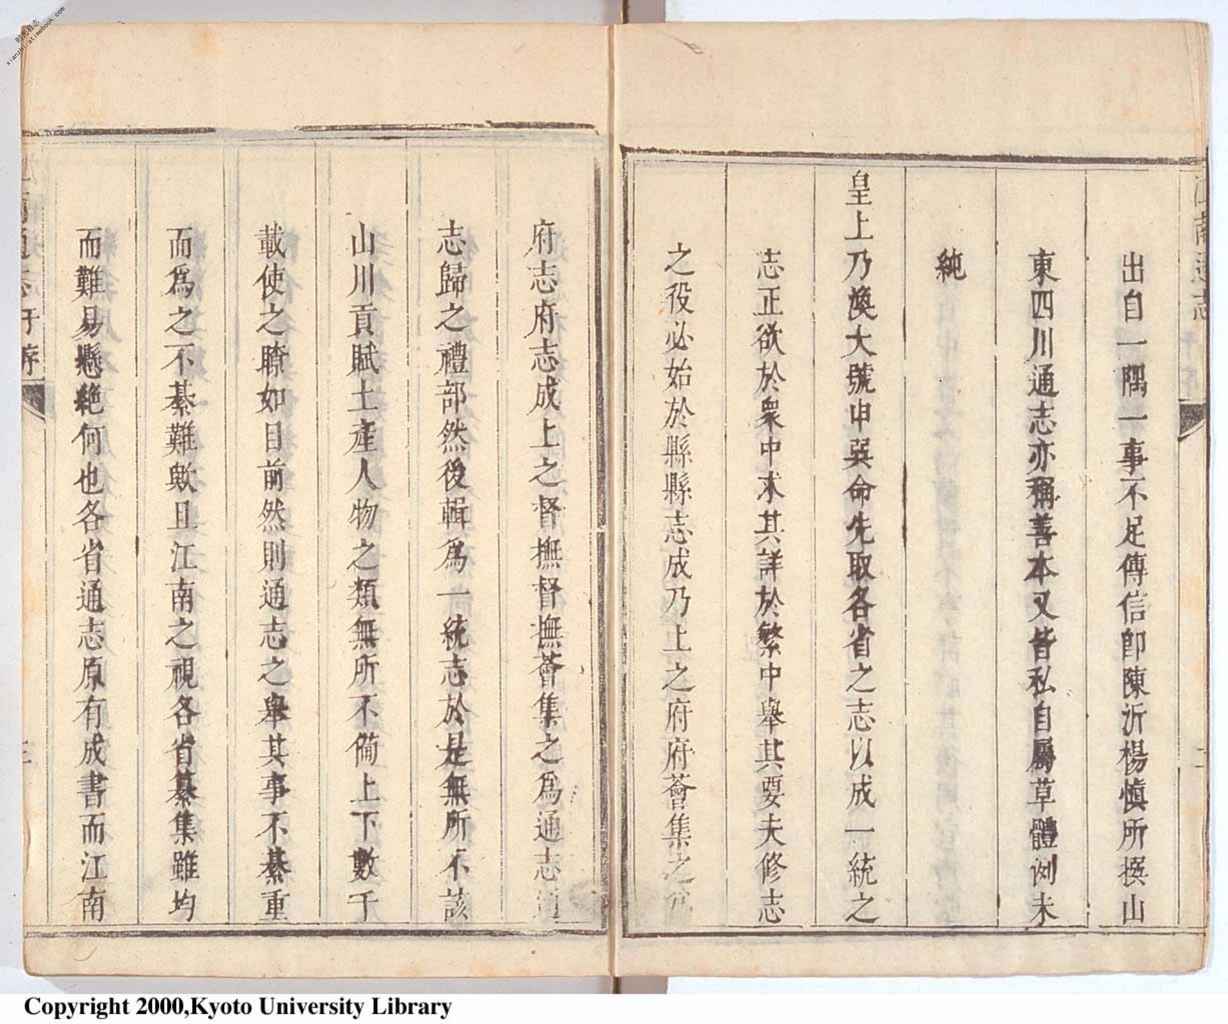 出自一隅一事不足傳信卽陳沂楊愼所撰山
東四川通志亦稱善本又皆私自屬草體例未
純
皇上乃渙大號申巽命先取各省之志以成一統之
志正欲於衆中求其詳於繁中舉其要夫修志
之役必始於縣縣志成乃上之府府薈集之爲
府志府志成上之督撫督撫薈集之爲通志通
志歸之禮部然後輯爲一統志於是無所不該
山川貢賦土產人物之類無所不備上下數千
載使之瞭如目前然則通志之舉其事不綦重
而爲之不綦難歟且江南之視各省纂集雖均
而難易懸絶何也各省通志原有成書而江南
江南通志 于序
Copyright 2000,Kyoto University Library